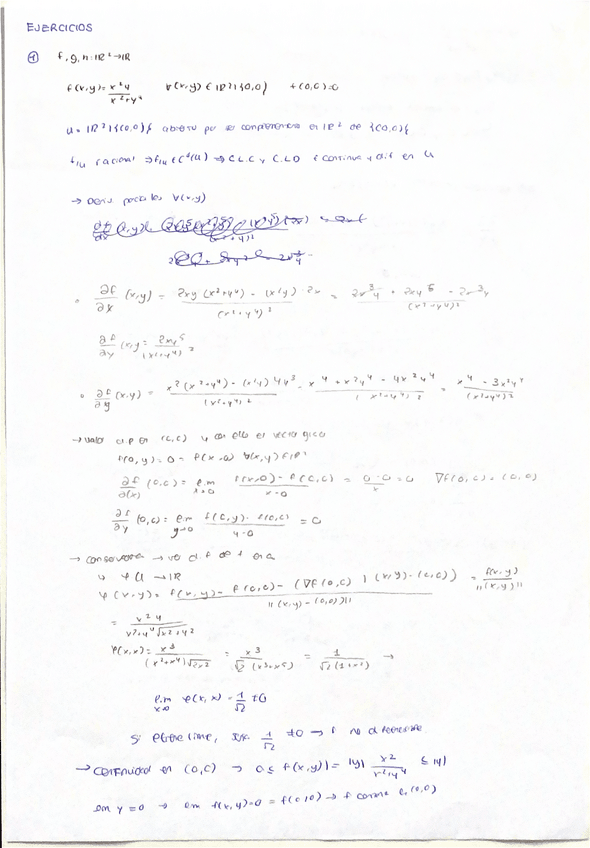 EJERCICIOS
① f, g, h : ℝ² → ℝ
f(x,y) = x²y / (x²+y⁴) ∀(x,y) ∈ ℝ²\{(0,0)} f(0,0)=0
U = ℝ²\{(0,0)} abierto por ser complementario en ℝ² de {(0,0)}
f|u racional ⇒ f|u ∈ C¹(U) ⇒ C.L.C y C.L.D f continua y dif en U
→ Deriv parciales ∀(x,y)
∂f/∂x (x,y) = (2xy (x²+y⁴) - (x²y) · 2x) / (x²+y⁴)² = (2x³y + 2xy⁵ - 2x³y) / (x²+y⁴)²
∂f/∂y (x,y) = 2xy⁵ / (x²+y⁴)²
∂f/∂y (x,y) = (x² (x²+y⁴) - (x²y) 4y³) / (x²+y⁴)² = (x⁴ + x²y⁴ - 4x²y⁴) / (x²+y⁴)² = (x⁴ - 3x²y⁴) / (x²+y⁴)²
→ valor d.p en (0,0) y con ello el vector
f(0,y) = 0 = f(x,0) ∀(x,y) ∈ ℝ²
∂f/∂(x) (0,0) = lim x→0 (f(x,0) - f(0,0)) / (x-0) = (0-0)/x = 0 ∇f(0,0) = (0,0)
∂f/∂y (0,0) = lim y→0 (f(0,y) - f(0,0)) / (y-0) = 0
→ de f en
φ U → ℝ
φ(x,y) = (f(x,y) - f(0,0) - (∇f(0,0) | (x,y) - (0,0))) / ||(x,y) - (0,0)|| = f(x,y) / ||(x,y)||
= x²y / (x²+y⁴ √x²+y²)
φ(x,x) = x³ / ((x²+x⁴) √2x²) = x³ / (√2 (x³+x⁵)) = 1 / (√2 (1+x²)) →
lim x→0 φ(x,x) = 1/√2 ≠ 0
Si lim, 1/√2 ≠ 0 → f no diferenciable
→ continuidad en (0,0) → 0 ≤ |f(x,y)| = |y| x² / (x²+y⁴) ≤ |y|
lim y = 0 → lim f(x,y) = 0 = f(0,0) → f en (0,0)